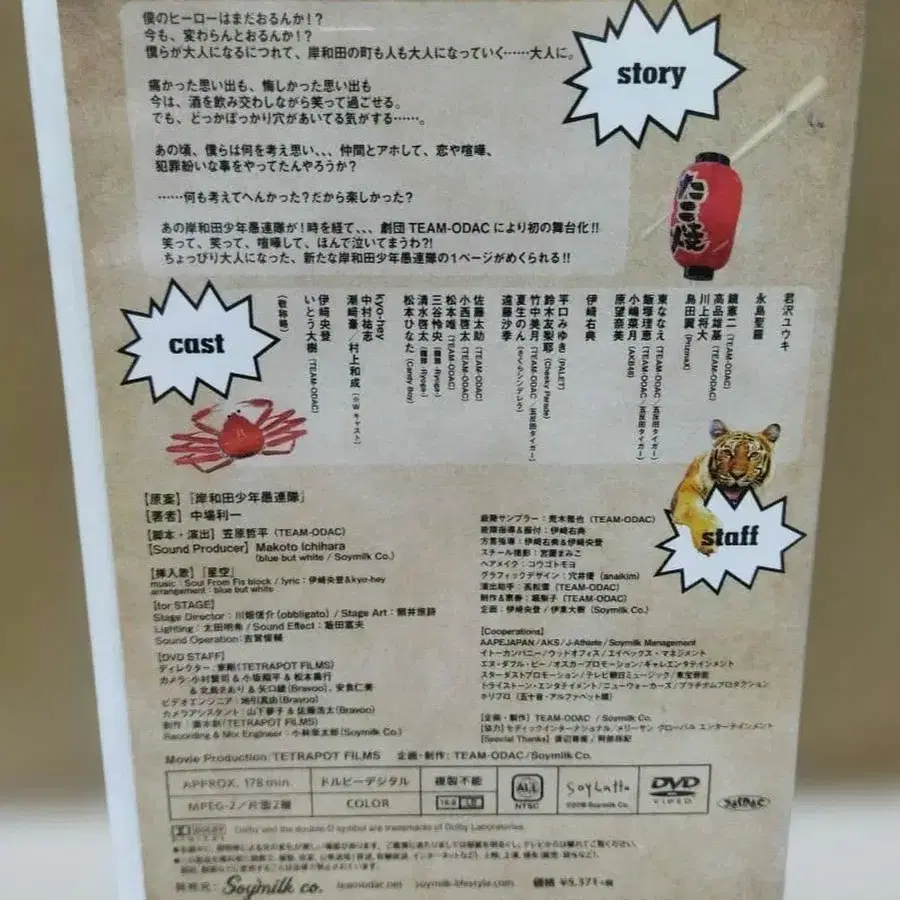 僕のヒーローはまだおるんか!?
今も、変わらんとおるんか!?
僕らが大人になるにつれて、岸和田の町も人も大人になっていく……大人に。
痛かった思い出も、悔しかった思い出も
今は、酒を飲み交わしながら笑って過ごせる。
でも、どっかぽっかり穴があいてる気がする……。
あの頃、僕らは何を考え思い、、、仲間とアホして、恋や喧嘩、
犯罪紛いな事をやってたんやろうか?
……何も考えてへんかった?だから楽しかった?
あの岸和田少年愚連隊が!時を経て、、、劇団 TEAM-ODAC により初の舞台化!!
笑って、笑って、喧嘩して、ほんで泣いてまうわ?!
ちょっぴり大人になった、新たな岸和田少年愚連隊の1ページがめくられる!!
story
たこ焼
cast
君沢ユウキ
永島聖羅
鐘憲二 (TEAM-ODAC)
高品雄基 (TEAM-ODAC)
川上将大
島田翼 (PrizmaX)
東ななえ (TEAM-ODAC/五反田タイガー)
飯塚理恵 (TEAM-ODAC/五反田タイガー)
小嶋菜月 (AKB48)
原望奈美
伊崎右典
平口みゆき (PALET)
鈴木友梨耶 (Cheeky Parade)
竹中美月 (TEAM-ODAC/五反田タイガー)
夏生のん (さくらシンデレラ)
遠藤沙季
佐藤太助 (TEAM-ODAC)
小西啓太 (TEAM-ODAC)
松本唯 (TEAM-ODAC)
三谷怜央
清水啓太
松本ひなた (Candy Boy)
kyo-hey
中村祐志
潮﨑豪/村上和成 (※Wキャスト)
伊﨑央登
いとう大樹 (TEAM-ODAC)
(敬称略)
【原案】『岸和田少年愚連隊』
【著者】中場利一
【脚本・演出】笠原哲平 (TEAM-ODAC)
【Sound Producer】Makoto Ichihara
(blue but white / Soymilk Co.)
【挿入歌】『星空』
music : Soul From Fis block / lyric : 伊﨑央登&kyo-hey
arrangement : blue but white
【for STAGE】
Stage Director : 川畑信介 (obbligato) / Stage Art : 照井旅詩
Lighting : 太田明希 / Sound Effect : 飯田富夫
Sound Operation : 吉賀俊輔
【DVD STAFF】
ディレクター : 東剛 (TETRAPOT FILMS)
ビデオエンジニア :
カメラアシスタント :
Recording & Mix Engineer : 小林亜太郎 (Soymilk Co.)
staff
殺陣サンプラー : 荒木雅也 (TEAM-ODAC)
殺陣指導&振付 : 伊崎右典
方言指導 : 伊崎右典&伊﨑央登
スチール撮影 : 宮腰まみこ
ヘアメイク : コウゴトモヨ
グラフィックデザイン : 穴井優 (anaikim)
演出助手 : 高松雪 (TEAM-ODAC)
企画 : 伊﨑央登 / 伊東大樹 (Soymilk Co.)
【Cooperations】
AAPEJAPAN / AKS / J-Athlete / Soymilk Management
イトーカンパニー / ウッドオフィス / エイベックス・マネジメント
エヌ・ダブル・ピー / オスカープロモーション / キャレエンタテインメント
スターダストプロモーション / テレビ朝日ミュージック / 東宝芸能
トライストーン・エンタテイメント / ニューウォーカーズ / プラチナムプロダクション
ホリプロ (五十音・アルファベット順)
【企画・製作】TEAM-ODAC / Soymilk Co.
【協力】モディックインターナショナル / メリーサン グローバル エンターテインメント
【Special Thanks】渡辺喜寛 / 阿部珠紀
Movie Production : TETRAPOT FILMS 企画・制作 : TEAM-ODAC/Soymilk Co.
APPROX. 178 min
ドルビーデジタル
複製不能
MPEG-2/片面2層
COLOR
16:9 LB
ALL
NTSC
SoyLatte
Soymilk Co.
DVD
VIDEO
DOLBY
Dolby and the double-D symbol are trademarks of Dolby Laboratories.
発売元: Soymilk co. teamodac.net soymilk-lifestyle.com 価格 ¥5,371+税